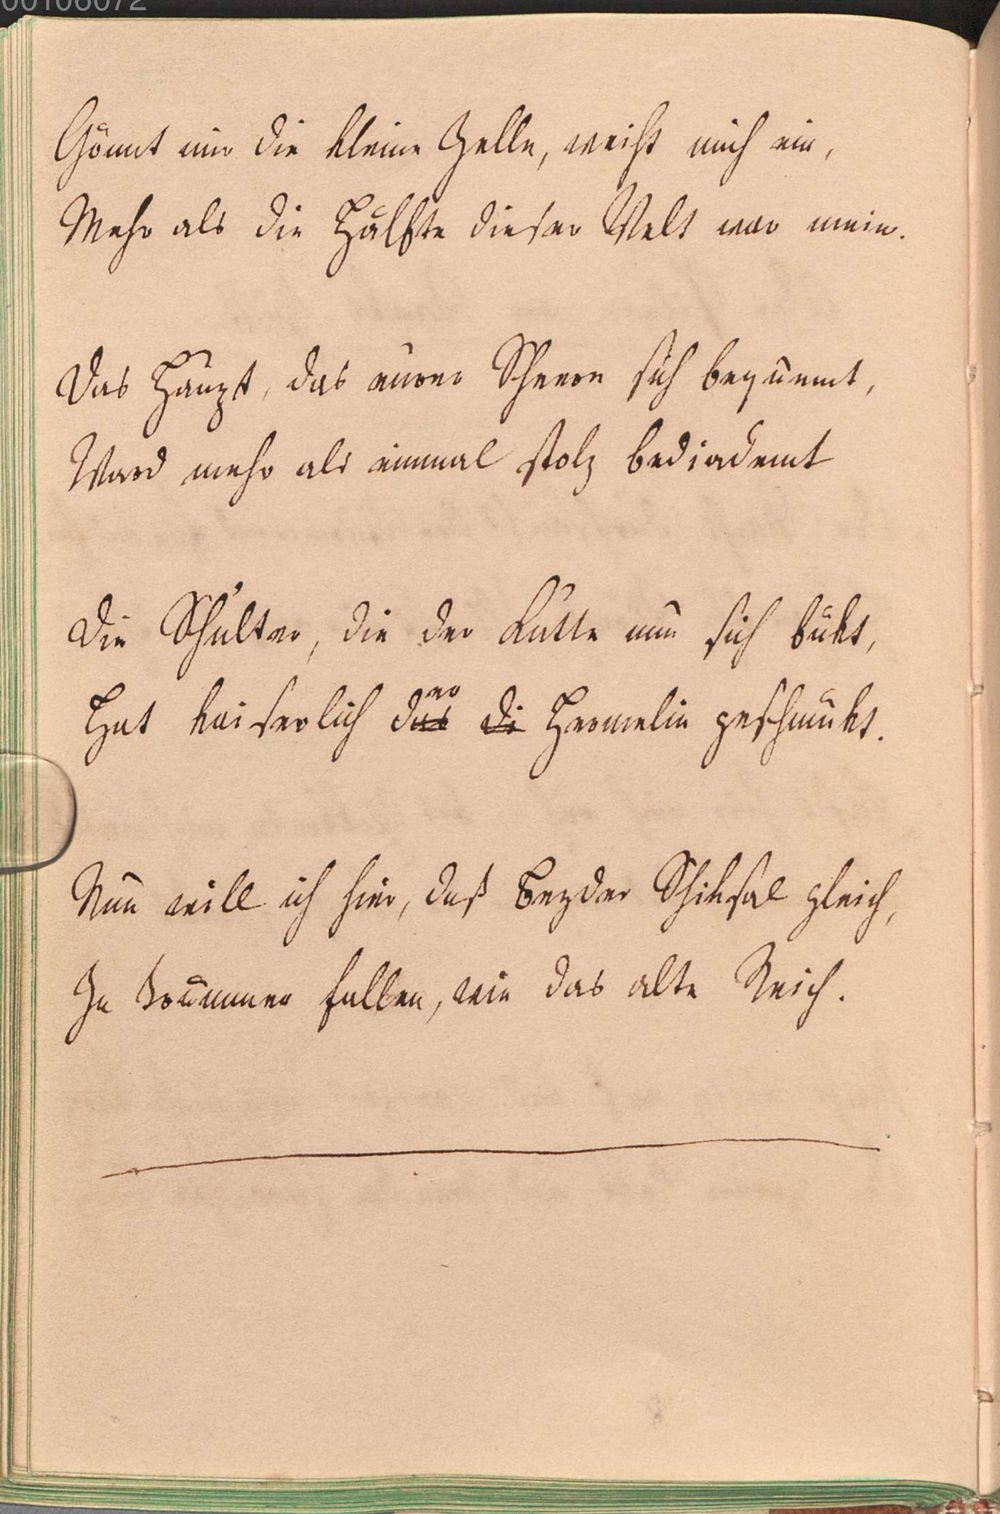 00106072
Gönnt mir die kleine Zelle, weiht mich ein,
Mehr als die Hälfte dieser Welt war mein.
Das Haupt, das eurer Scheere sich bequemt,
Ward mehr als einmal stolz bediademt
Die Schulter, die der Kutte nun sich bükt,
Hat kaiserlich das er di Hermelin geschmükt.
Nun will ich hier, daß Beyder Schiksal gleich,
In Trümmer fallen, wie das alte Reich.